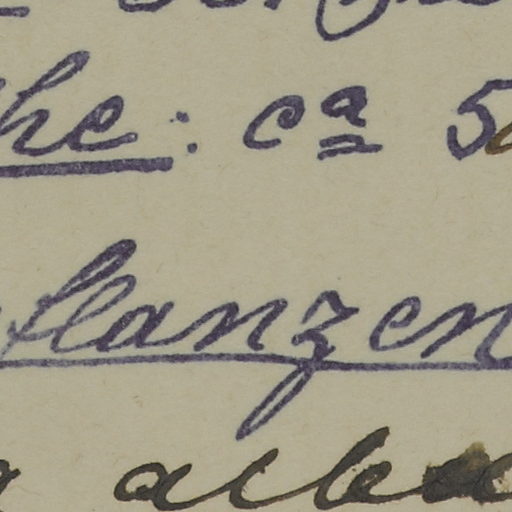 he : ca 5
flanzen
alba